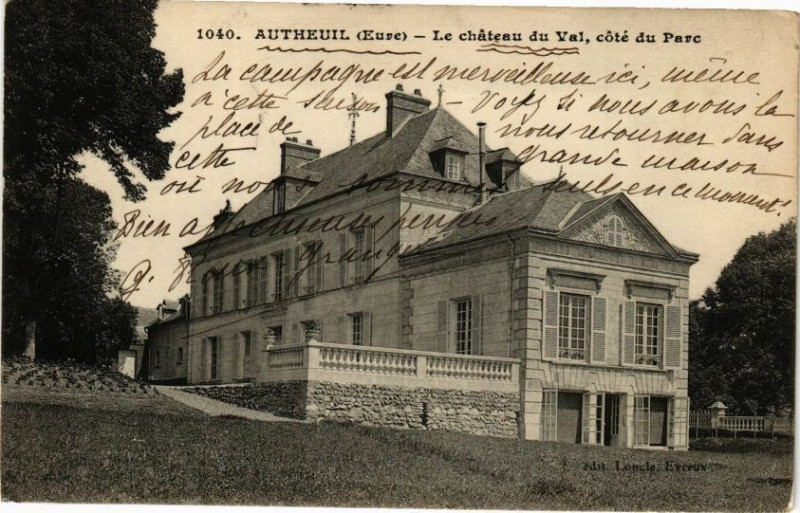 1040. AUTHEUIL (Eure) – Le château du Val, côté du Parc
La campagne est merveilleuse ici, même
à cette saison – Voyez si nous avons la
place de nous retourner dans
cette grande maison
où nous sommes seuls en ce moment!
Bien affectueuses pensées
G.
édit. Loncle, Evreux